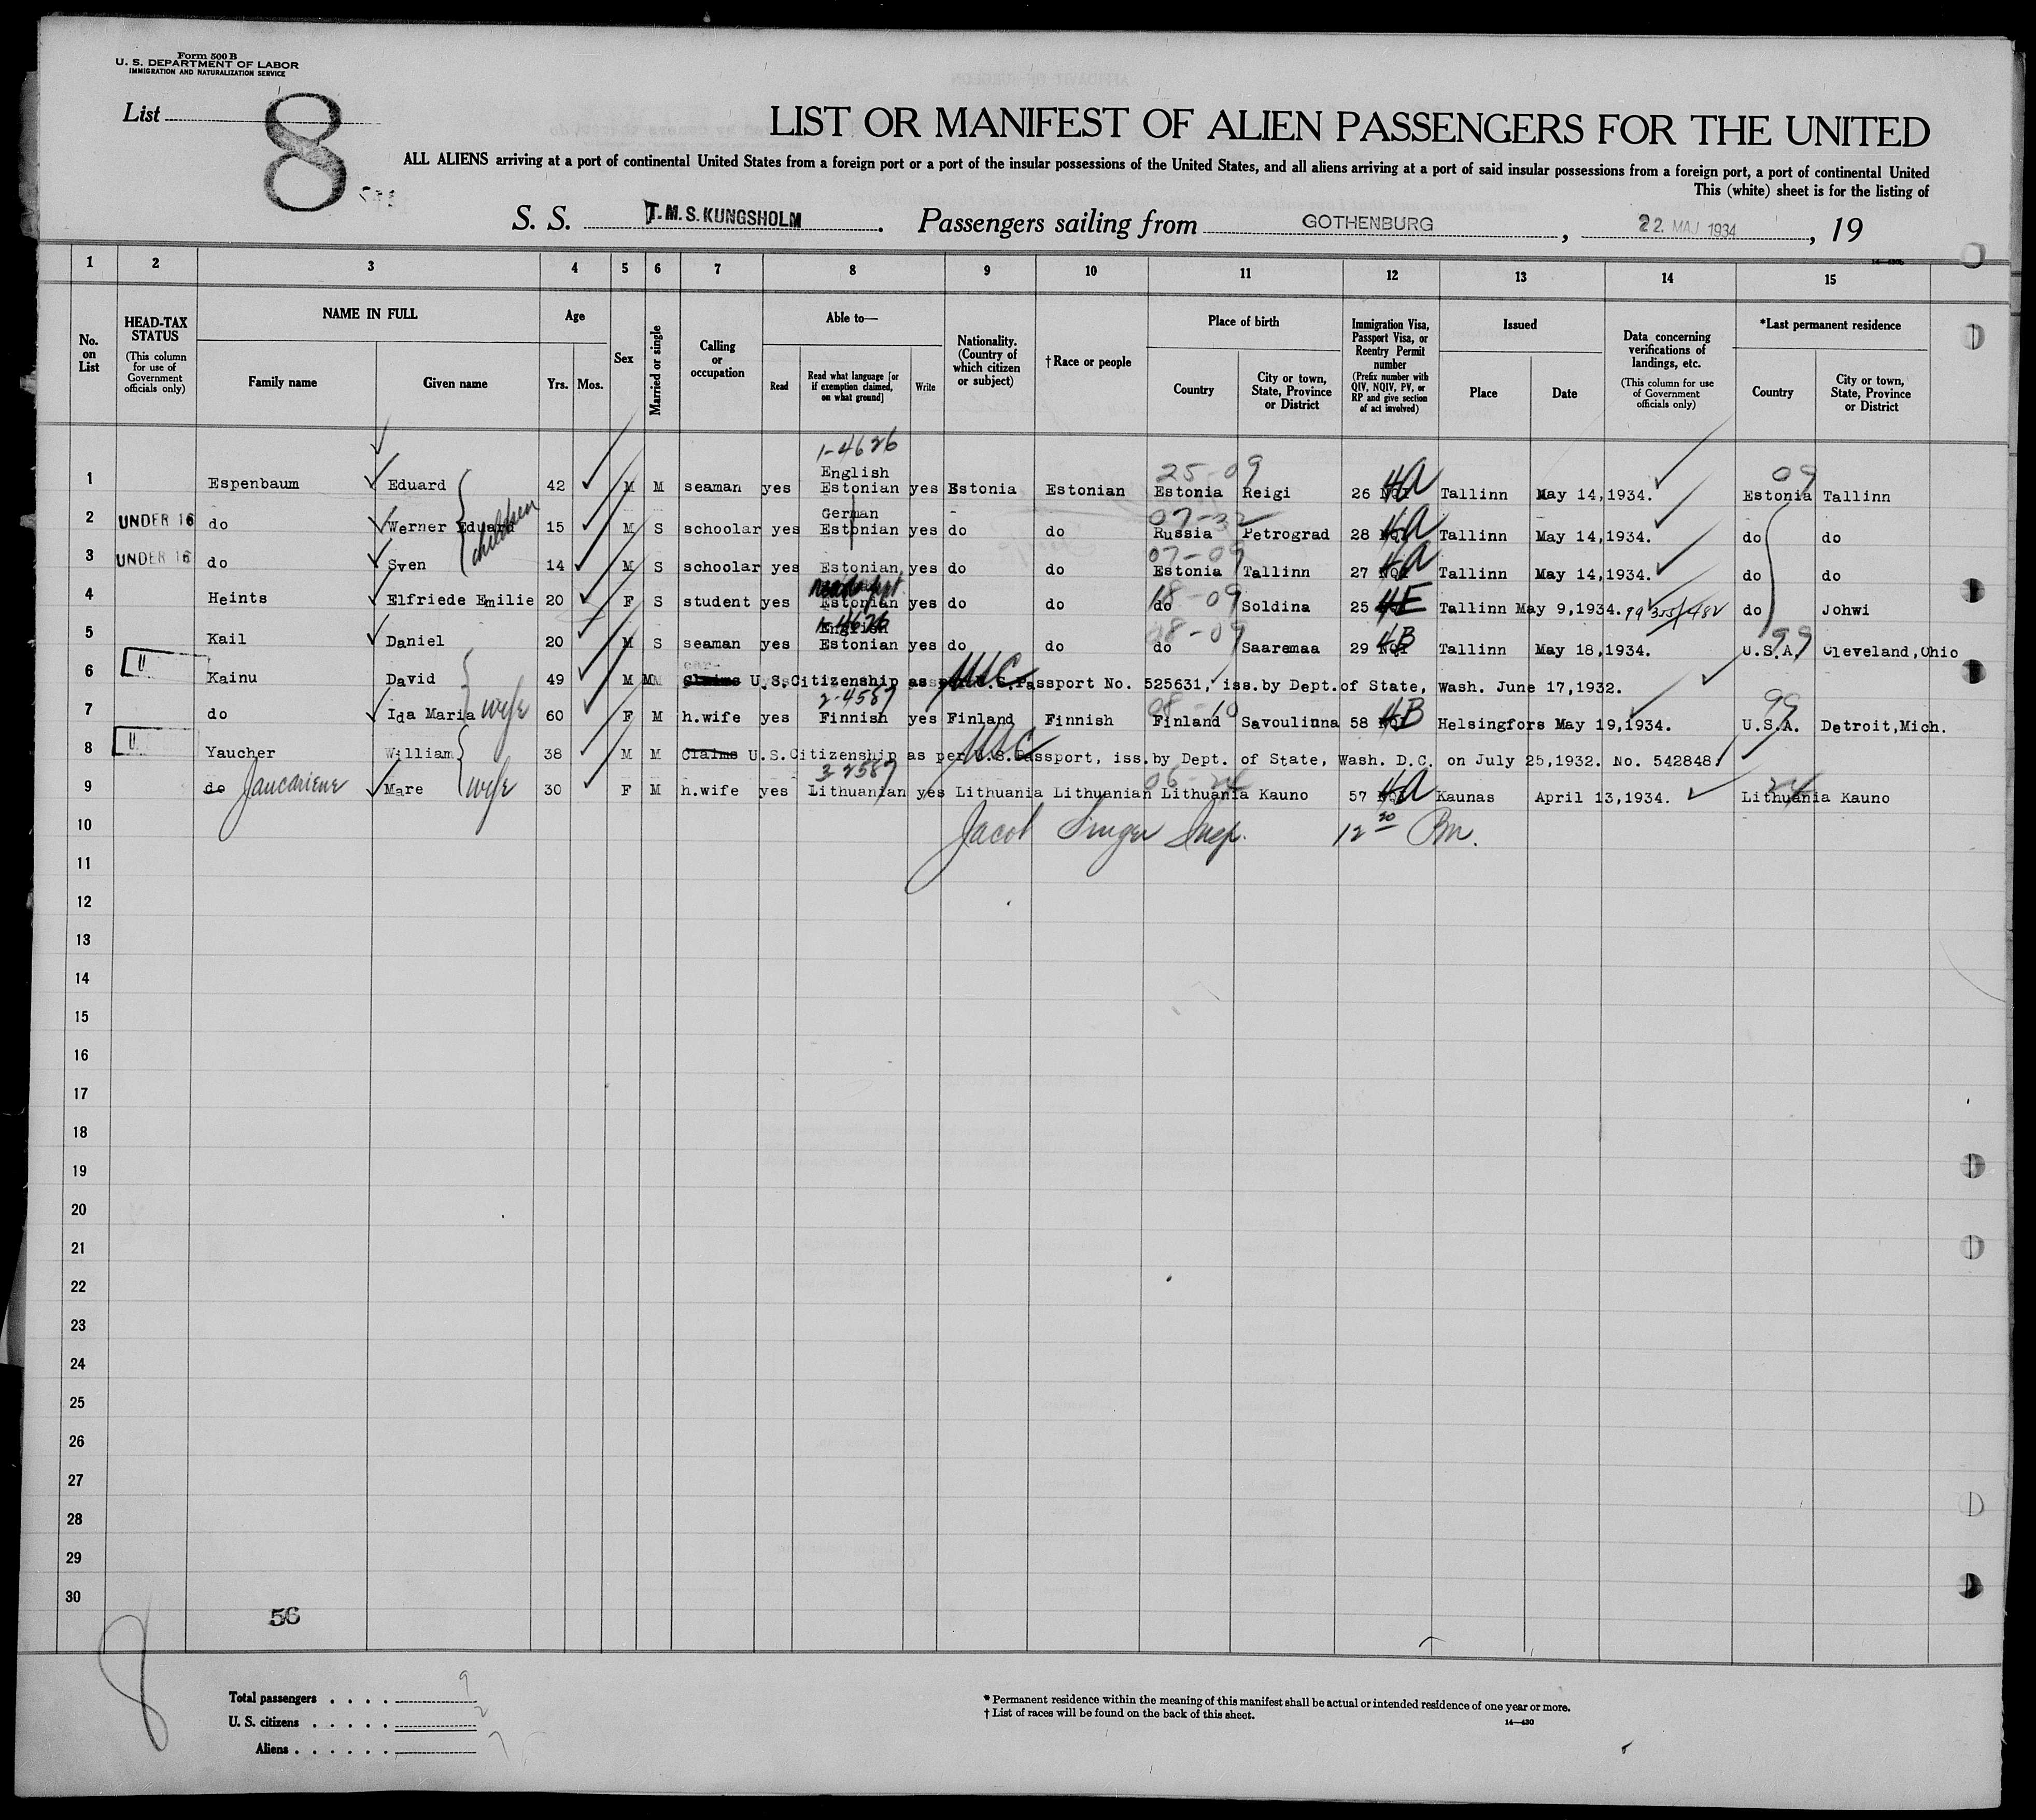 Form 500 B
U. S. DEPARTMENT OF LABOR
IMMIGRATION AND NATURALIZATION SERVICE
List 8
LIST OR MANIFEST OF ALIEN PASSENGERS FOR THE UNITED
ALL ALIENS arriving at a port of continental United States from a foreign port or a port of the insular possessions of the United States, and all aliens arriving at a port of said insular possessions from a foreign port, a port of continental United
This (white) sheet is for the listing of
S. S. T.M.S. KUNGSHOLM. Passengers sailing from GOTHENBURG, 22. MAJ 1934, 19
1 2 3 4 5 6 7 8 9 10 11 12 13 14 15
No. on List
HEAD-TAX STATUS
(This column for use of Government officials only)
NAME IN FULL
Family name Given name
Age
Yrs. Mos.
Sex
Married or single
Calling or occupation
Able to—
Read
Read what language [or if exemption claimed, on what ground]
Write
Nationality. (Country of which citizen or subject)
† Race or people
Place of birth
Country
City or town, State, Province or District
Immigration Visa, Passport Visa, or Reentry Permit number
(Prefix number with QIV, NQIV, PV, or RP and give section of act involved)
Issued
Place Date
Data concerning verifications of landings, etc.
(This column for use of Government officials only)
*Last permanent residence
Country
City or town, State, Province or District
1-4626
English 25-09 09
1 Espenbaum Eduard 42 M M seaman yes Estonian yes Estonia Estonian Estonia Reigi 26 4A Tallinn May 14,1934. Estonia Tallinn
children
German 07-32
2 UNDER 16 do Werner Eduard 15 M S schoolar yes Estonian yes do do Russia Petrograd 28 4A Tallinn May 14,1934. do do
07-09
3 UNDER 16 do Sven 14 M S schoolar yes Estonian yes do do Estonia Tallinn 27 4A Tallinn May 14,1934. do do
18-09
4 Heints Elfriede Emilie 20 F S student yes Estonian yes do do do Soldina 25 4E Tallinn May 9,1934. do Johwi
1-4626
English 08-09 99
5 Kail Daniel 20 M S seaman yes Estonian yes do do do Saaremaa 29 4B Tallinn May 18,1934. U.S.A. Cleveland,Ohio
6 Kainu David 49 M M Claims U.S.Citizenship as per U.S.Passport No. 525631, iss.by Dept.of State, Wash. June 17,1932.
2-4587 08-10 99
7 do Ida Maria wife 60 F M h.wife yes Finnish yes Finland Finnish Finland Savoulinna 58 4B Helsingfors May 19,1934. U.S.A. Detroit,Mich.
8 Yaucher William 38 M M Claims U.S.Citizenship as per U.S.Passport, iss.by Dept. of State, Wash. D.C. on July 25,1932. No. 542848.
3-2587 06-24 24
9 do Jaucariene Mare wife 30 F M h.wife yes Lithuanian yes Lithuania Lithuanian Lithuania Kauno 57 4A Kaunas April 13,1934. Lithuania Kauno
10 Jacob Singer Insp. 12 20 Pm.
11
12
13
14
15
16
17
18
19
20
21
22
23
24
25
26
27
28
29
30
56
8
Total passengers . . . . 9
U. S. citizens . . . . . 2
Aliens . . . . . . 7
* Permanent residence within the meaning of this manifest shall be actual or intended residence of one year or more.
† List of races will be found on the back of this sheet.
14—430